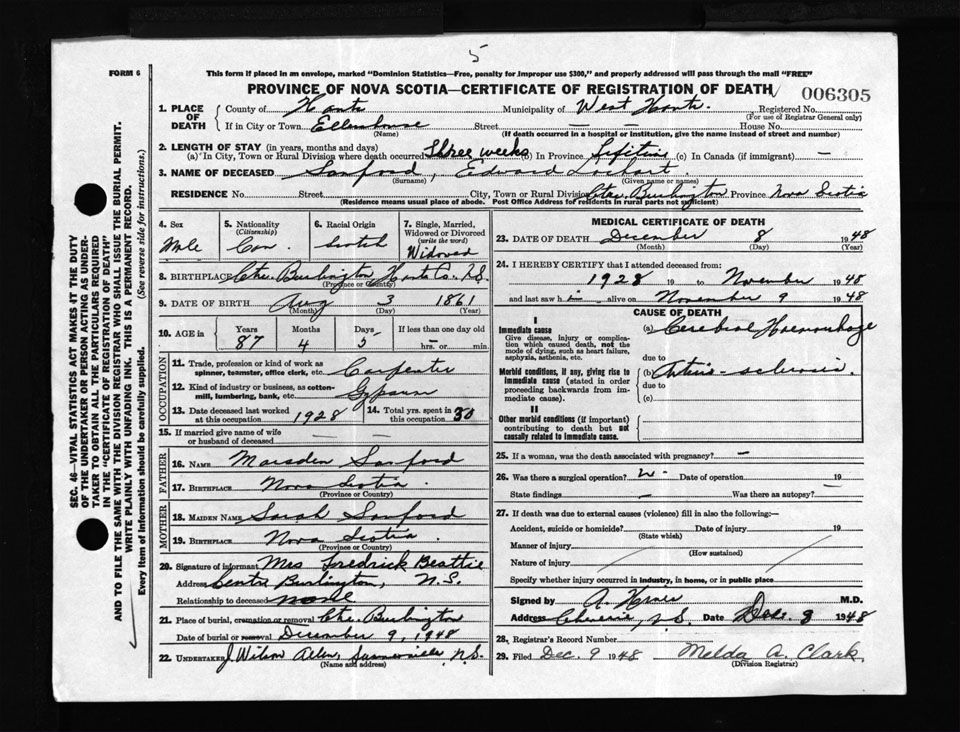 5
FORM 6
This form if placed in an envelope, marked "Dominion Statistics—Free, penalty for improper use $300," and properly addressed will pass through the mail "FREE"
PROVINCE OF NOVA SCOTIA—CERTIFICATE OF REGISTRATION OF DEATH 006305
1. PLACE OF DEATH
County of Hants Municipality of West Hants. Registered No.
(For use of Registrar General only)
If in City or Town Ellershouse Street — — House No.
(Name) (If death occurred in a hospital or institution, give the name instead of street and number)
2. LENGTH OF STAY (in years, months and days)
(a) In City, Town or Rural Division where death occurred Three weeks (b) In Province Lifetime (c) In Canada (if immigrant) —
3. NAME OF DECEASED Sanford, Edward
(Surname) (Given name or names)
RESIDENCE No. Street City, Town or Rural Division Ctre. Burlington Province Nova Scotia
(Residence means usual place of abode. Post Office Address for residents in rural parts not sufficient)
4. Sex
Mle
5. Nationality
(Citizenship)
Can.
6. Racial Origin
Scotch
7. Single, Married, Widowed or Divorced
(write the word)
Widowed
8. BIRTHPLACE Ctre. Burlington, Hants Co. N.S.
(Province or Country)
9. DATE OF BIRTH Aug 3 1861
(Month) (Day) (Year)
10. AGE in Years Months Days If less than one day old
87 4 5 hrs. or min.
OCCUPATION
11. Trade, profession or kind of work as spinner, teamster, office clerk, etc. Carpenter
12. Kind of industry or business, as cotton-mill, lumbering, bank, etc. Gypsum
13. Date deceased last worked at this occupation 1928
14. Total yrs. spent in this occupation 30
15. If married give name of wife or husband of deceased — —
FATHER
16. NAME Marsden Sanford
17. BIRTHPLACE Nova Scotia.
(Province or Country)
MOTHER
18. MAIDEN NAME Sarah Sanford
19. BIRTHPLACE Nova Scotia.
(Province or Country)
20. Signature of informant Mrs Fredrick Beattie
Address Centre Burlington, N.S.
Relationship to deceased none
21. Place of burial, cremation or removal Ctre. Burlington
Date of burial or removal December 9, 1948
22. UNDERTAKER J. Wilson Allen, Summerville N.S.
(Name and address)
MEDICAL CERTIFICATE OF DEATH
23. DATE OF DEATH December 8 1948
(Month) (Day) (Year)
24. I HEREBY CERTIFY that I attended deceased from:
1928 19 to November 1948
and last saw him alive on November 9 1948
CAUSE OF DEATH
I
Immediate cause
Give disease, injury or complication which caused death, not the mode of dying, such as heart failure, asphyxia, asthenia, etc.
(a) Cerebral Haemorrhage
due to
Morbid conditions, if any, giving rise to immediate cause (stated in order proceeding backwards from immediate cause).
(b) Arterio-sclerosis.
due to
(c)
II
Other morbid conditions (if important) contributing to death but not causally related to immediate cause.
25. If a woman, was the death associated with pregnancy? —
26. Was there a surgical operation? Date of operation 19
State findings — Was there an autopsy? —
27. If death was due to external causes (violence) fill in also the following:—
Accident, suicide or homicide? Date of injury 19
(State which)
Manner of injury
(How sustained)
Nature of injury
Specify whether injury occurred in industry, in home, or in public place
Signed by A. M.D.
Address Cheverie, N.S. Date Dec. 8 1948
28. Registrar's Record Number
29. Filed Dec. 9 1948 Melda A. Clark
(Division Registrar)
SEC. 46—VITAL STATISTICS ACT MAKES IT THE DUTY
OF THE UNDERTAKER OR PERSON ACTING AS UNDER-
TAKER TO OBTAIN ALL THE PARTICULARS REQUIRED
IN THE "CERTIFICATE OF REGISTRATION OF DEATH"
AND TO FILE THE SAME WITH THE DIVISION REGISTRAR WHO SHALL ISSUE THE BURIAL PERMIT.
WRITE PLAINLY WITH UNFADING INK. THIS IS A PERMANENT RECORD.
Every item of information should be carefully supplied. (See reverse side for instructions.)